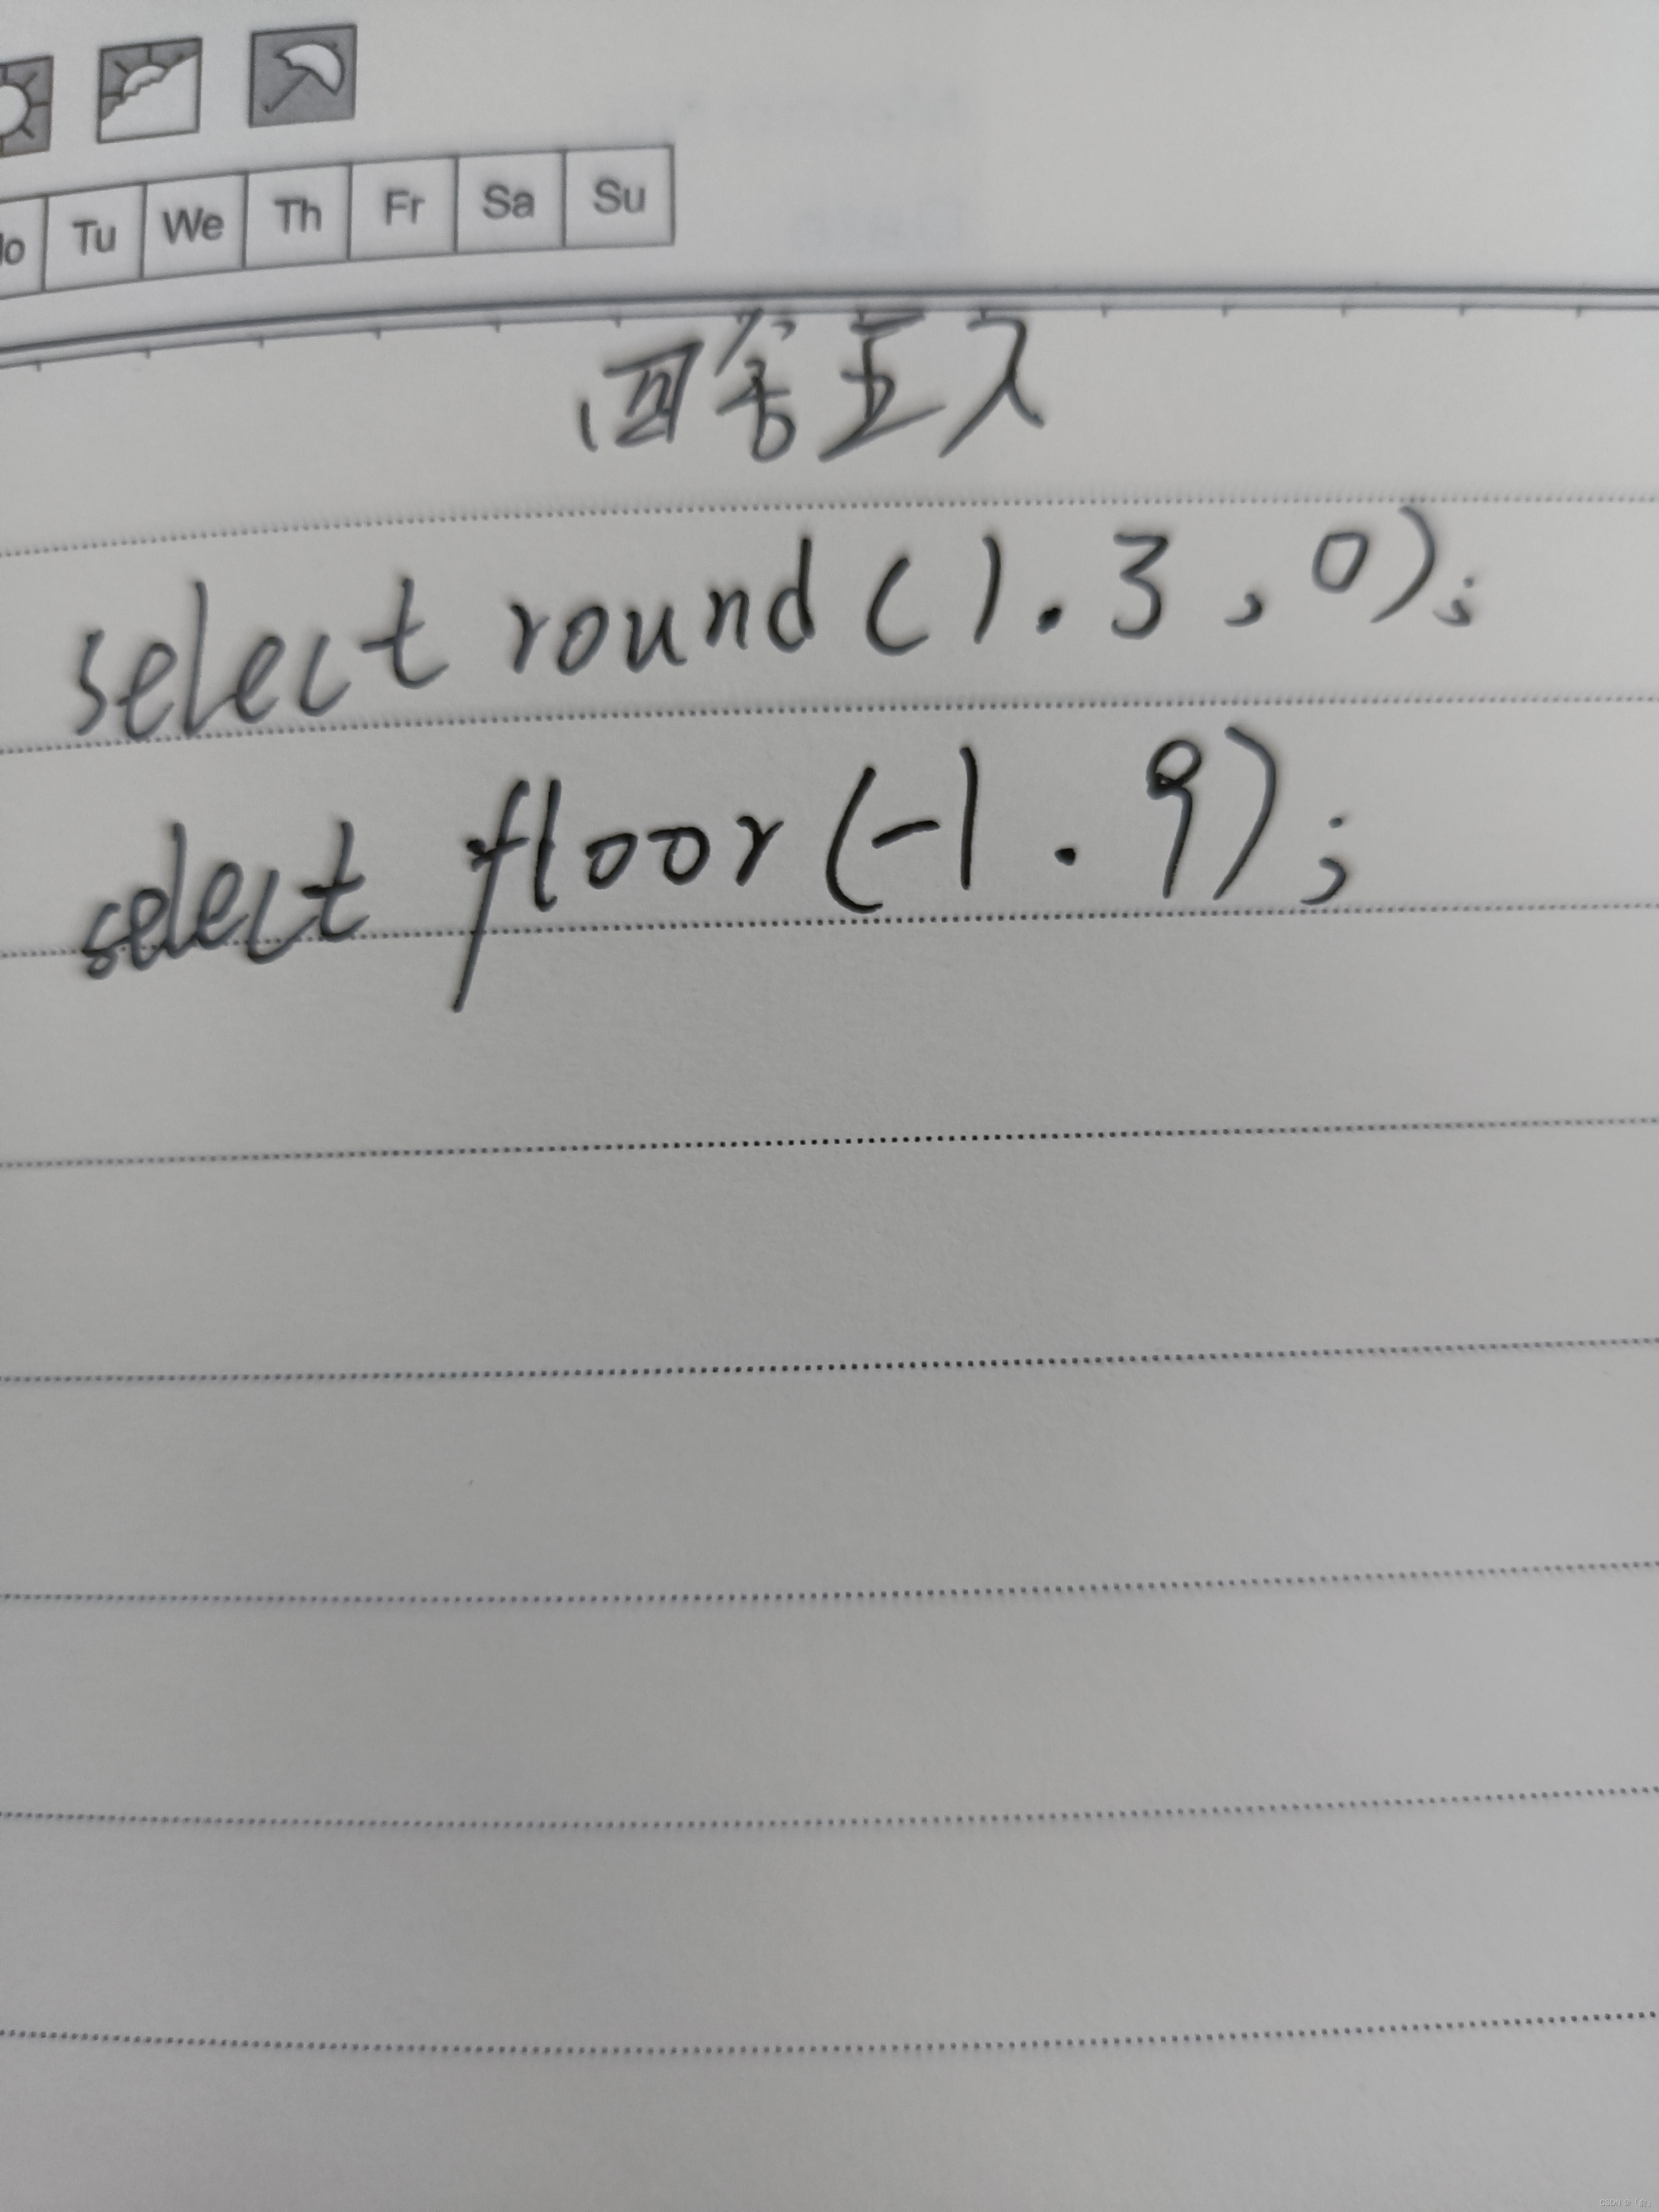 Mo Tu We Th Fr Sa Su
四舍五入
select round(1.3,0);
select floor(-1.9);